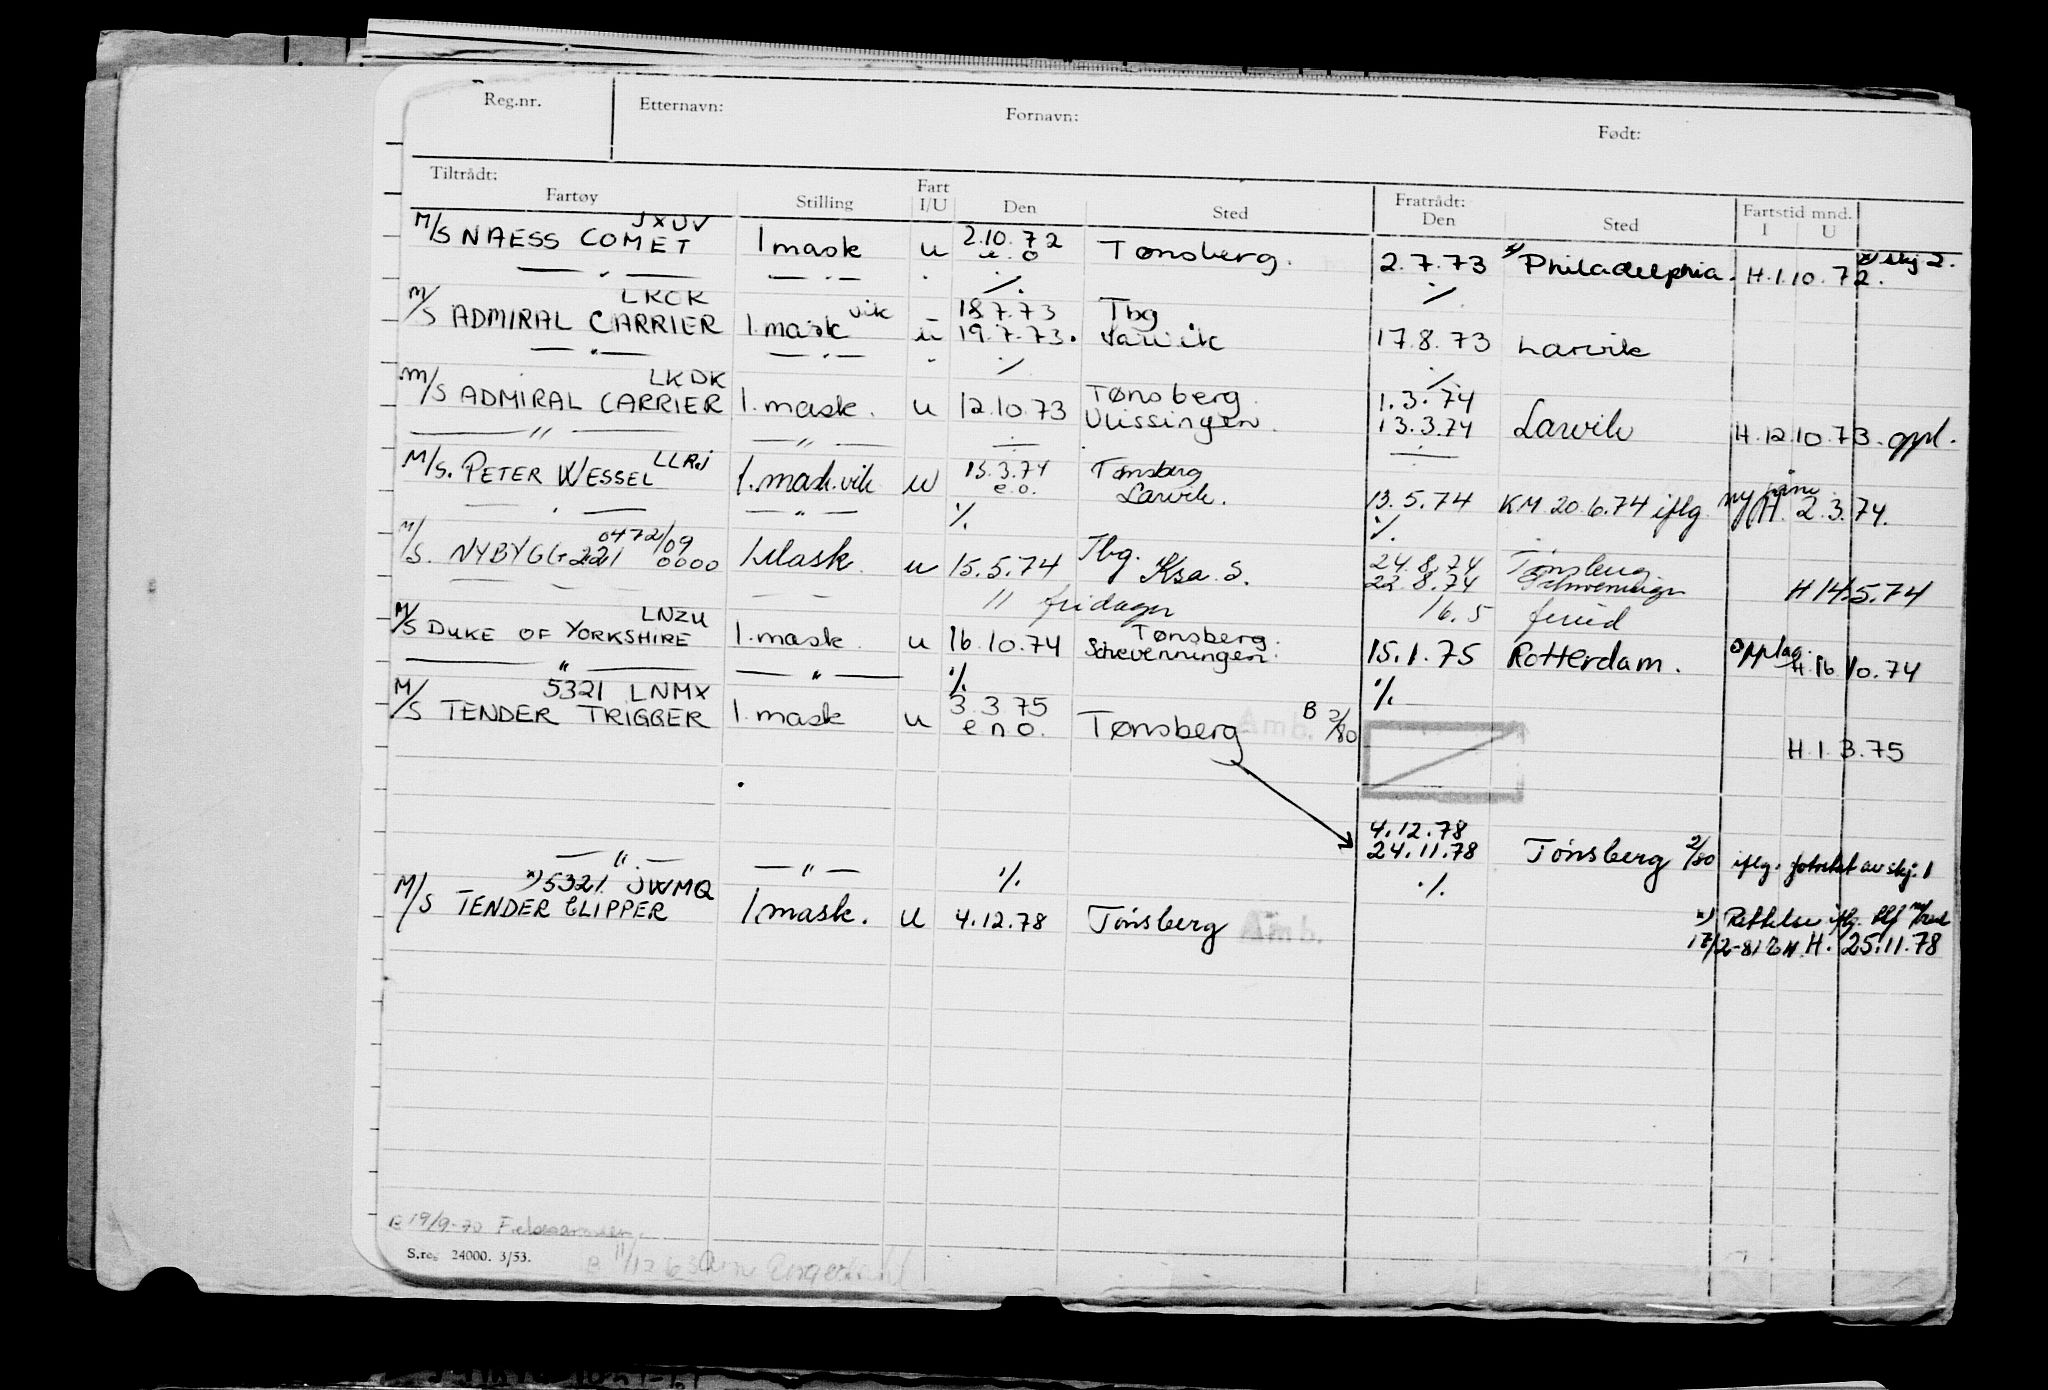 Reg.nr. Etternavn: Fornavn: Født:
Tiltrådt: Fart Fratrådt: Fartstid mnd.
Fartøy Stilling I/U Den Sted Den Sted I U
JXUV
M/S NAESS COMET 1 mask u 2.10.72 e.o Tønsberg. 2.7.73 x) Philadelphia. H.1.10.72. x) skj 2.
— " — — " — " ./. ./.
LKCK 18.7.73 Tbg
M/S ADMIRAL CARRIER 1. mask vik u 19.7.73. Larvik 17.8.73 Larvik
— " — — " — " ./. ./.
LKDK Tønsberg. 1.3.74
M/S ADMIRAL CARRIER 1. mask. u 12.10.73 Vlissingen. 13.3.74 Larvik H.12.10.73. oppl.
— " — — " —
M/S. PETER WESSEL LLRJ 1. mask. vik u 13.3.74 e.o. Tønsberg Larvik. 13.5.74 KM 20.6.74 iflg. ny H. 2.3.74.
— " — — " — ./. ./.
0472/09 Tbg. 24.8.74 Tønsberg
M/S. NYBYGG 221 0000 1 Mask. u 15.5.74 Ksa. S. 22.8.74 H 14.5.74
— — — — 11 fridager 16.5 feried
LNZU Tønsberg.
M/S DUKE OF YORKSHIRE 1. mask. u 16.10.74 Schevenningen. 15.1.75 Rotterdam. Opplag. H.16.10.74
— " — — " — ./. ./.
5321 LNMX 3.3.75
M/S TENDER TRIGGER 1. mask u e n o. Tønsberg Amb. B 2/80
H.1.3.75
4.12.78
24.11.78 Tønsberg 2/80 iflg. fotostat av skj. 1
— " — — " — ./. ./.
x) 5321 JWMQ
M/S TENDER CLIPPER 1. mask. u 4.12.78 Tønsberg Amb. x) Rettelse iflg. tlf
17/2-81 H. 25.11.78
B 19/9-70
S.reg 24000. 3/53.
B 11/12 63